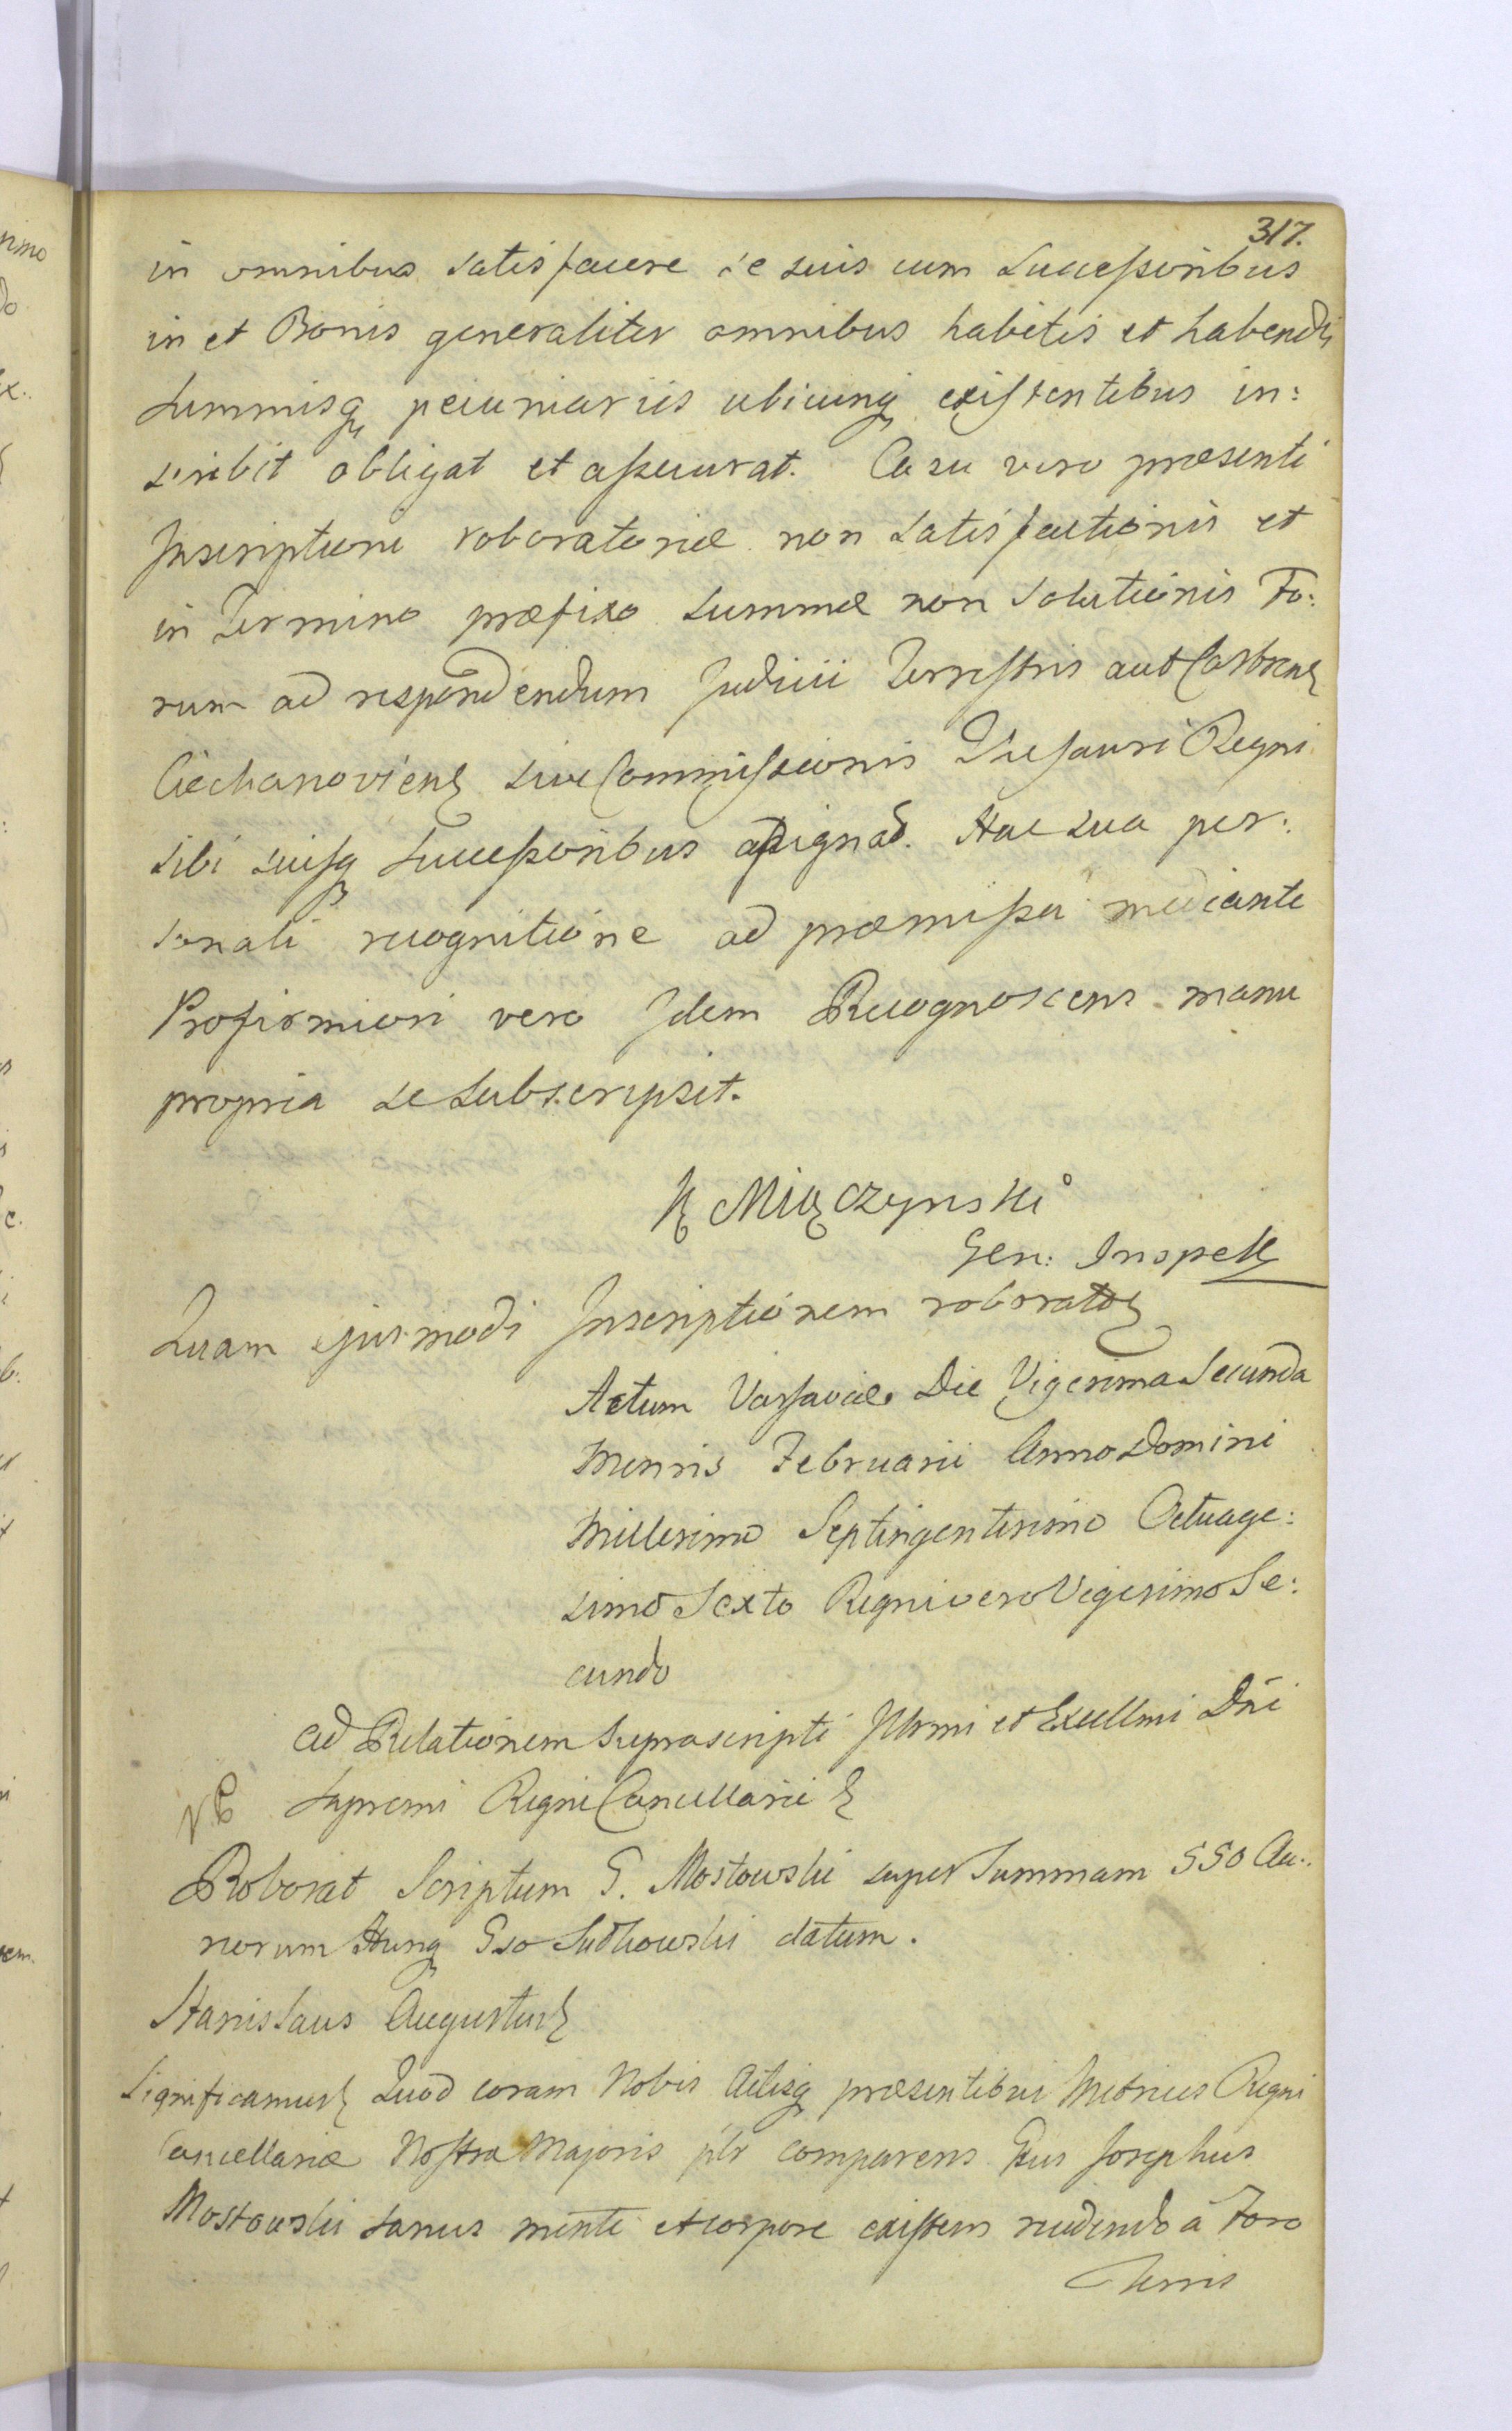 317.
in omnibus satisfacere se suis cum Successoribus
in et Bonis generaliter omnibus habitis et habendis
Summisq pecuniariis ubicunq existentibus in:
scribit obligat et assecurat. Casu vero præsenti
Inscriptioni roboratoriæ non satisfactionis et
in Termino præfixo Summæ non Solutionis Fo:
rum ad respondendum Judicii Terrestris aut Castren
Ciechanovien sive Commissionis Thesauri Regni
sibi suisq Successoribus assignat. Hac sua per:
sonali recognitione ad præmissa mediante
Profirmiori vero Idem Recognoscens manu
propria se subscripsit.
K Miączynski
Gen: Inspek
Quam ejusmodi Inscriptionem roborator
Actum Varsaviæ Die Vigesima Secunda
Mensis Februarii Anno Domini
Millesimo Septingentesimo Octuage:
simo Sexto Regni vero Vigesimo Se:
cundo
Ad Relationem suprascripti Illrmi et Excellmi Dni
Supremi Regni Cancellarii
Roborat Scriptum G. Mostowski super Summam 550 Au:
reorum Hung Gso Sutkowski datum.
Stanislaus Augustus
Significamus Quod coram Nobis Actisq præsentibus Metrices Regni
Cancellariæ Nostra Majoris plr comparens Gsus Josephus
Mostowski sanus mente et corpore existens recedendo à Foro
Terris